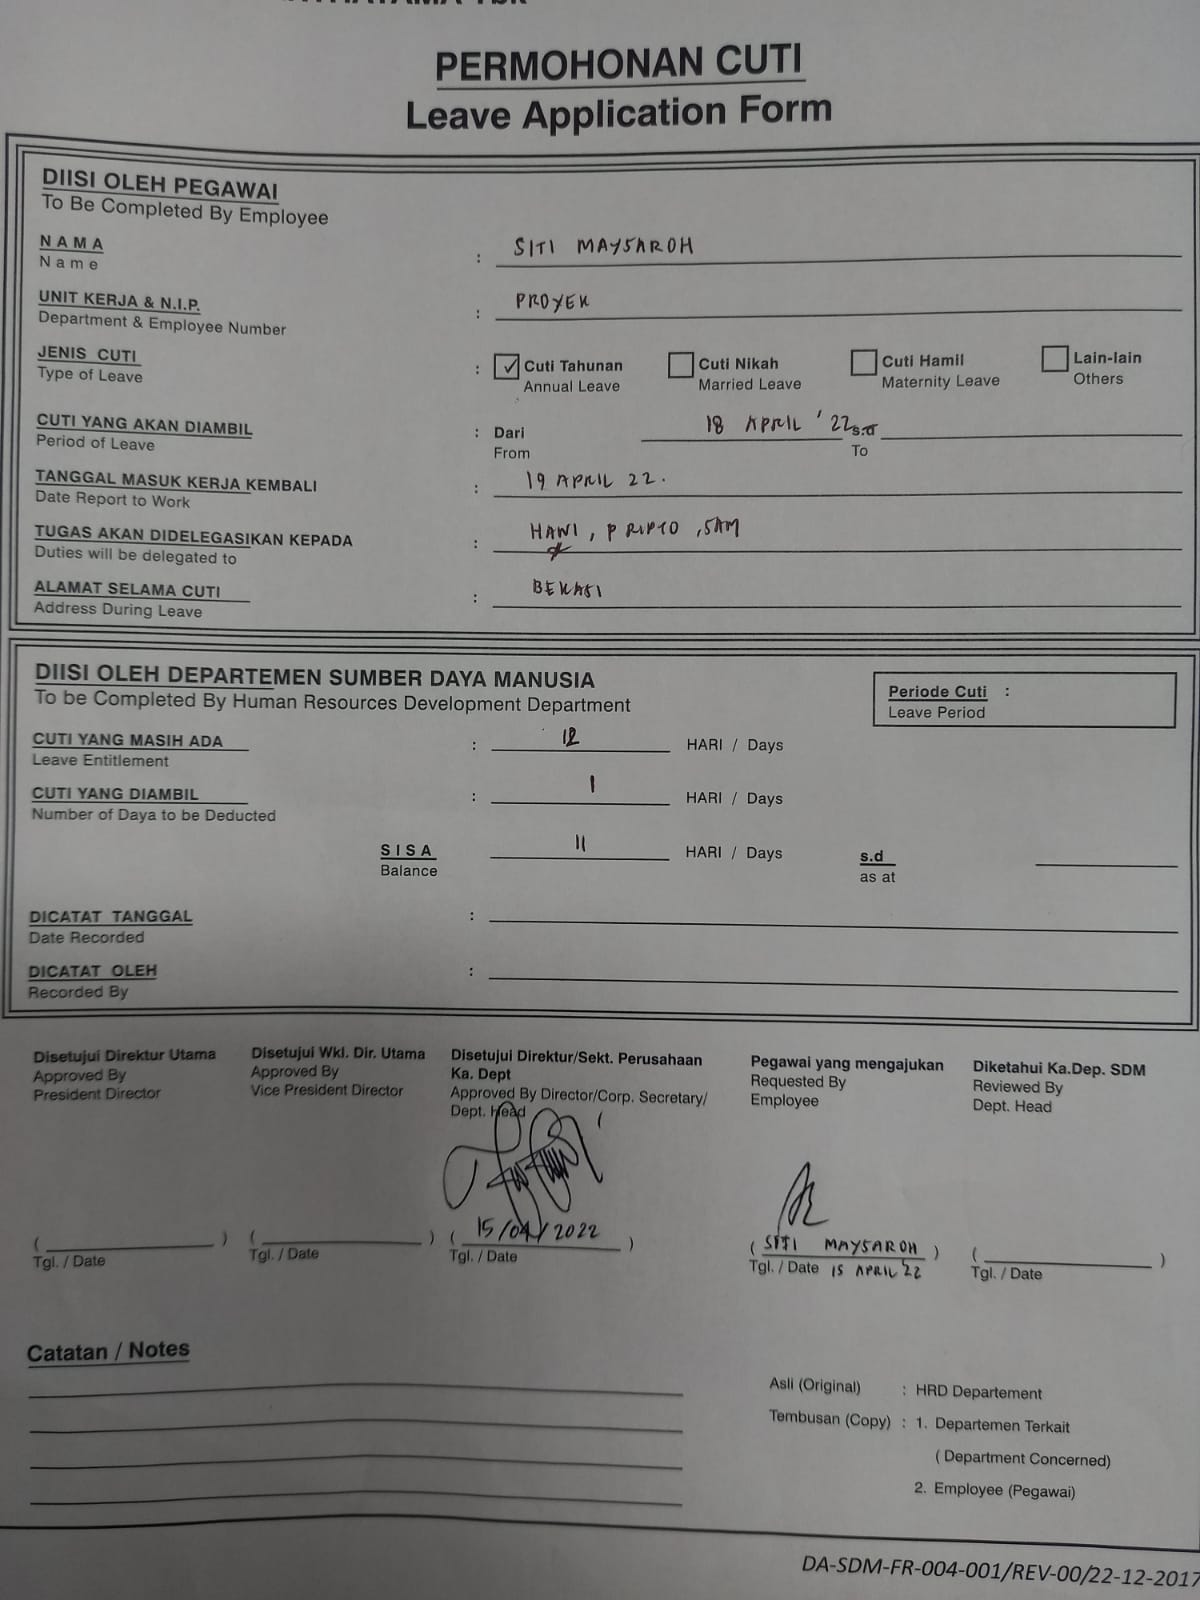 PERMOHONAN CUTI
Leave Application Form
DIISI OLEH PEGAWAI
To Be Completed By Employee
NAMA
Name
: SITI MAYSAROH
UNIT KERJA & N.I.P.
Department & Employee Number
: PROYEK
JENIS CUTI
Type of Leave
: ✓ Cuti Tahunan Cuti Nikah Cuti Hamil Lain-lain
Annual Leave Married Leave Maternity Leave Others
CUTI YANG AKAN DIAMBIL
Period of Leave
: Dari 18 APRIL '22 s.d
From To
TANGGAL MASUK KERJA KEMBALI
Date Report to Work
: 19 APRIL 22.
TUGAS AKAN DIDELEGASIKAN KEPADA
Duties will be delegated to
: HANI, P RIPTO, SAM
ALAMAT SELAMA CUTI
Address During Leave
: BEKASI
DIISI OLEH DEPARTEMEN SUMBER DAYA MANUSIA
To be Completed By Human Resources Development Department
Periode Cuti :
Leave Period
CUTI YANG MASIH ADA : 12 HARI / Days
Leave Entitlement
CUTI YANG DIAMBIL : 1 HARI / Days
Number of Daya to be Deducted
SISA 11 HARI / Days s.d
Balance as at
DICATAT TANGGAL :
Date Recorded
DICATAT OLEH :
Recorded By
Disetujui Direktur Utama
Approved By
President Director
Disetujui Wkl. Dir. Utama
Approved By
Vice President Director
Disetujui Direktur/Sekt. Perusahaan
Ka. Dept
Approved By Director/Corp. Secretary/
Dept. Head
Pegawai yang mengajukan
Requested By
Employee
Diketahui Ka.Dep. SDM
Reviewed By
Dept. Head
( )
Tgl. / Date
( )
Tgl. / Date
( 15/04/2022 )
Tgl. / Date
( SITI MAYSAROH )
Tgl. / Date 15 APRIL '22
( )
Tgl. / Date
Catatan / Notes
Asli (Original) : HRD Departement
Tembusan (Copy) : 1. Departemen Terkait
( Department Concerned)
2. Employee (Pegawai)
DA-SDM-FR-004-001/REV-00/22-12-2017